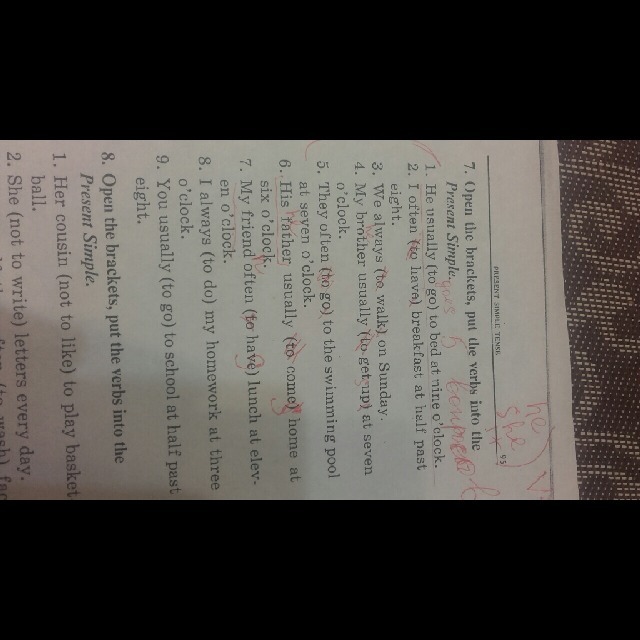 PRESENT SIMPLE TENSE 95
he
she
7. Open the brackets, put the verbs into the
Present Simple.
1. He usually (to go) to bed at nine o'clock.
2. I often (to have) breakfast at half past
eight.
3. We always (to walk) on Sunday.
4. My brother usually (to get up) at seven
o'clock.
5. They often (to go) to the swimming pool
at seven o'clock.
6. His father usually (to come) home at
six o'clock.
7. My friend often (to have) lunch at elev-
en o'clock.
8. I always (to do) my homework at three
o'clock.
9. You usually (to go) to school at half past
eight.
8. Open the brackets, put the verbs into the
Present Simple.
1. Her cousin (not to like) to play basket
ball.
2. She (not to write) letters every day.